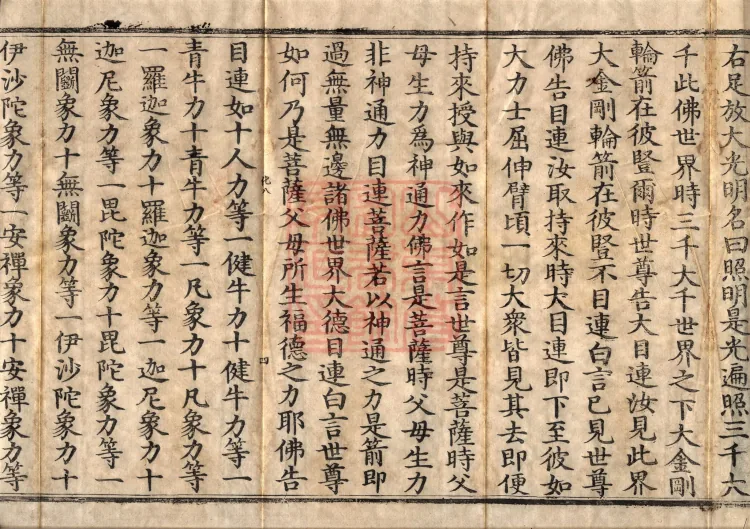 右足放大光明名曰照明是光遍照三千大
千此佛世界時三千大千世界之下大金剛
輪箭在彼竪爾時世尊告大目連汝見此界
大金剛輪箭在彼竪不目連白言已見世尊
佛告目連汝取持來時大目連即下至彼如
大力士屈伸臂頃一切大衆皆見其去即便
持來授與如來作如是言世尊是菩薩時父
母生力爲神通力佛言是菩薩時父母生力
非神通力目連菩薩若以神通之力是箭即
過無量無邊諸佛世界大德目連白言世尊
如何乃是菩薩父母所生福德之力耶佛告
目連如十人力等一健牛力十健牛力等一
青牛力十青牛力等一凡象力十凡象力等
一羅迦象力十羅迦象力等一迦尼象力十
迦尼象力等一毘陀象力十毘陀象力等一
無鬭象力十無鬭象力等一伊沙陀象力十
伊沙陀象力等一安禪象力十安禪象力等